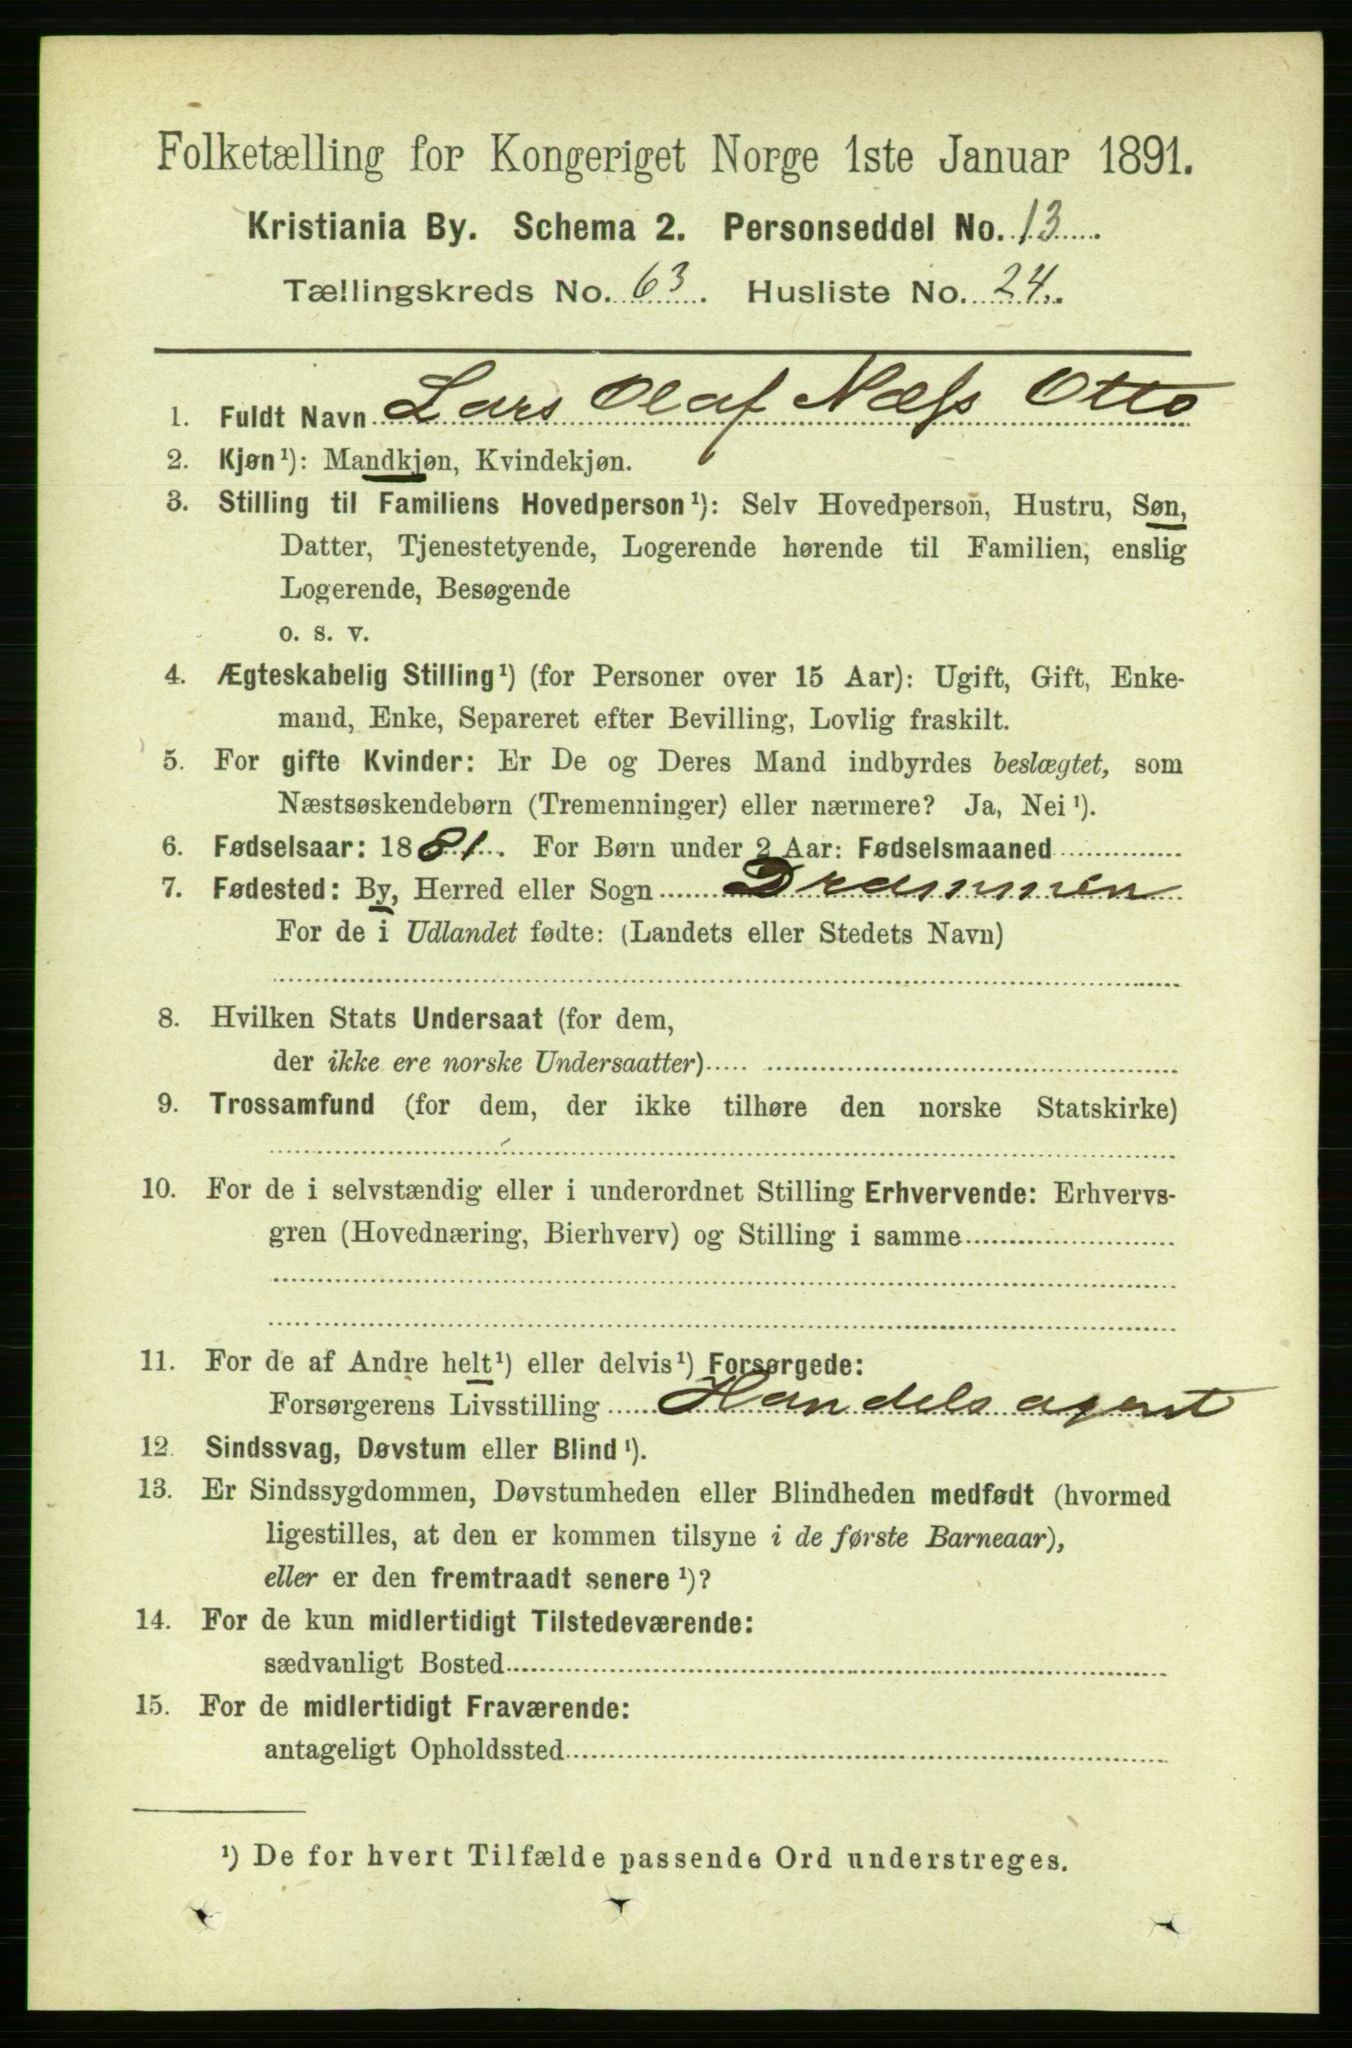 Folketælling for Kongeriget Norge 1ste Januar 1891.
Kristiania By. Schema 2. Personseddel No. 13
Tællingskreds No. 63. Husliste No. 24.
1. Fuldt Navn Lars Olaf Næss Otto
2. Kjøn¹): Mandkjøn, Kvindekjøn.
3. Stilling til Familiens Hovedperson¹): Selv Hovedperson, Hustru, Søn,
Datter, Tjenestetyende, Logerende hørende til Familien, enslig
Logerende, Besøgende
o. s. v.
4. Ægteskabelig Stilling¹) (for Personer over 15 Aar): Ugift, Gift, Enke-
mand, Enke, Separeret efter Bevilling, Lovlig fraskilt.
5. For gifte Kvinder: Er De og Deres Mand indbyrdes beslægtet, som
Næstsøskendebørn (Tremenninger) eller nærmere? Ja, Nei¹).
6. Fødselsaar: 1881. For Børn under 2 Aar: Fødselsmaaned
7. Fødested: By, Herred eller Sogn Drammen
For de i Udlandet fødte: (Landets eller Stedets Navn)
8. Hvilken Stats Undersaat (for dem,
der ikke ere norske Undersaatter)
9. Trossamfund (for dem, der ikke tilhøre den norske Statskirke)
10. For de i selvstændig eller i underordnet Stilling Erhvervende: Erhvervs-
gren (Hovednæring, Bierhverv) og Stilling i samme
11. For de af Andre helt¹) eller delvis¹) Forsørgede:
Forsørgerens Livsstilling Handelsagent
12. Sindssvag, Døvstum eller Blind¹).
13. Er Sindssygdommen, Døvstumheden eller Blindheden medfødt (hvormed
ligestilles, at den er kommen tilsyne i de første Barneaar),
eller er den fremtraadt senere¹)?
14. For de kun midlertidigt Tilstedeværende:
sædvanligt Bosted
15. For de midlertidigt Fraværende:
antageligt Opholdssted
¹) De for hvert Tilfælde passende Ord understreges.